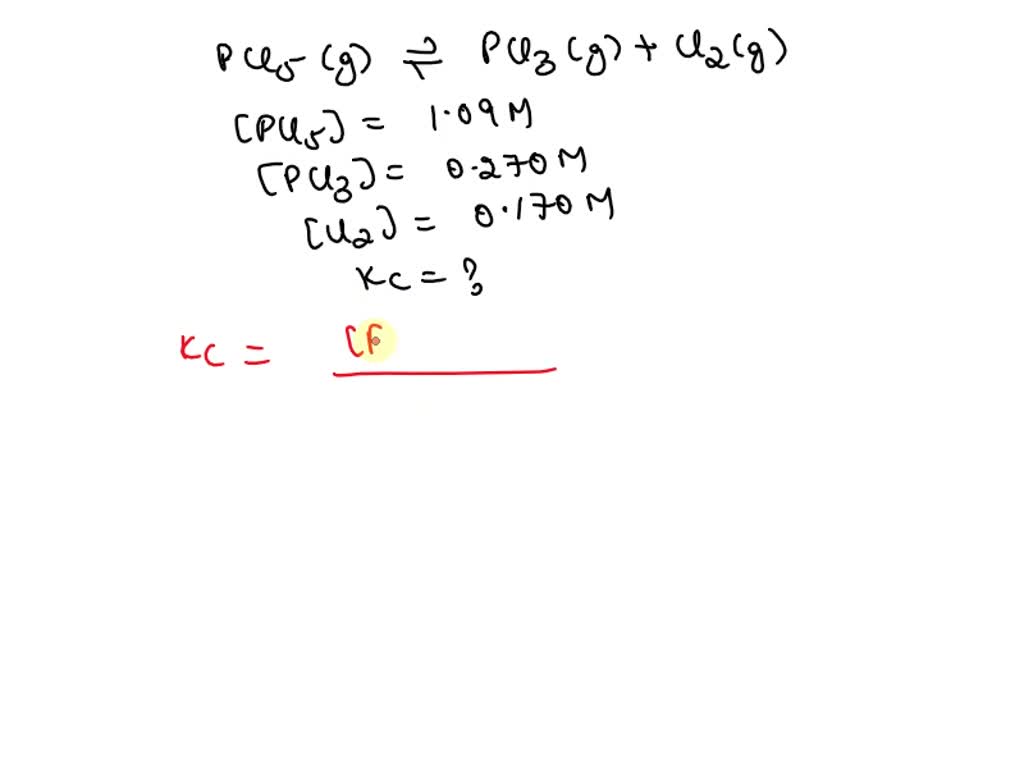 PCl5 (g) ⇌ PCl3 (g) + Cl2 (g)
[PCl5] = 1.09 M
[PCl3] = 0.270 M
[Cl2] = 0.170 M
Kc = ?
Kc = [P